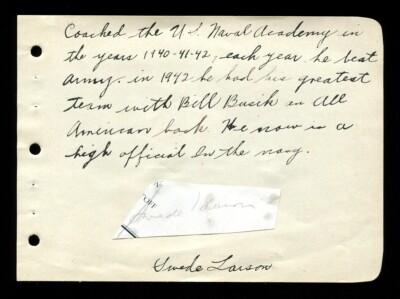 Coached the U.S. Naval Academy in
the years 1940-41-42, each year he beat
army. in 1942 he had his greatest
team with Bill Busik an All
American back. He now is a
high official in the navy.
Swede Larson
Swede Larson